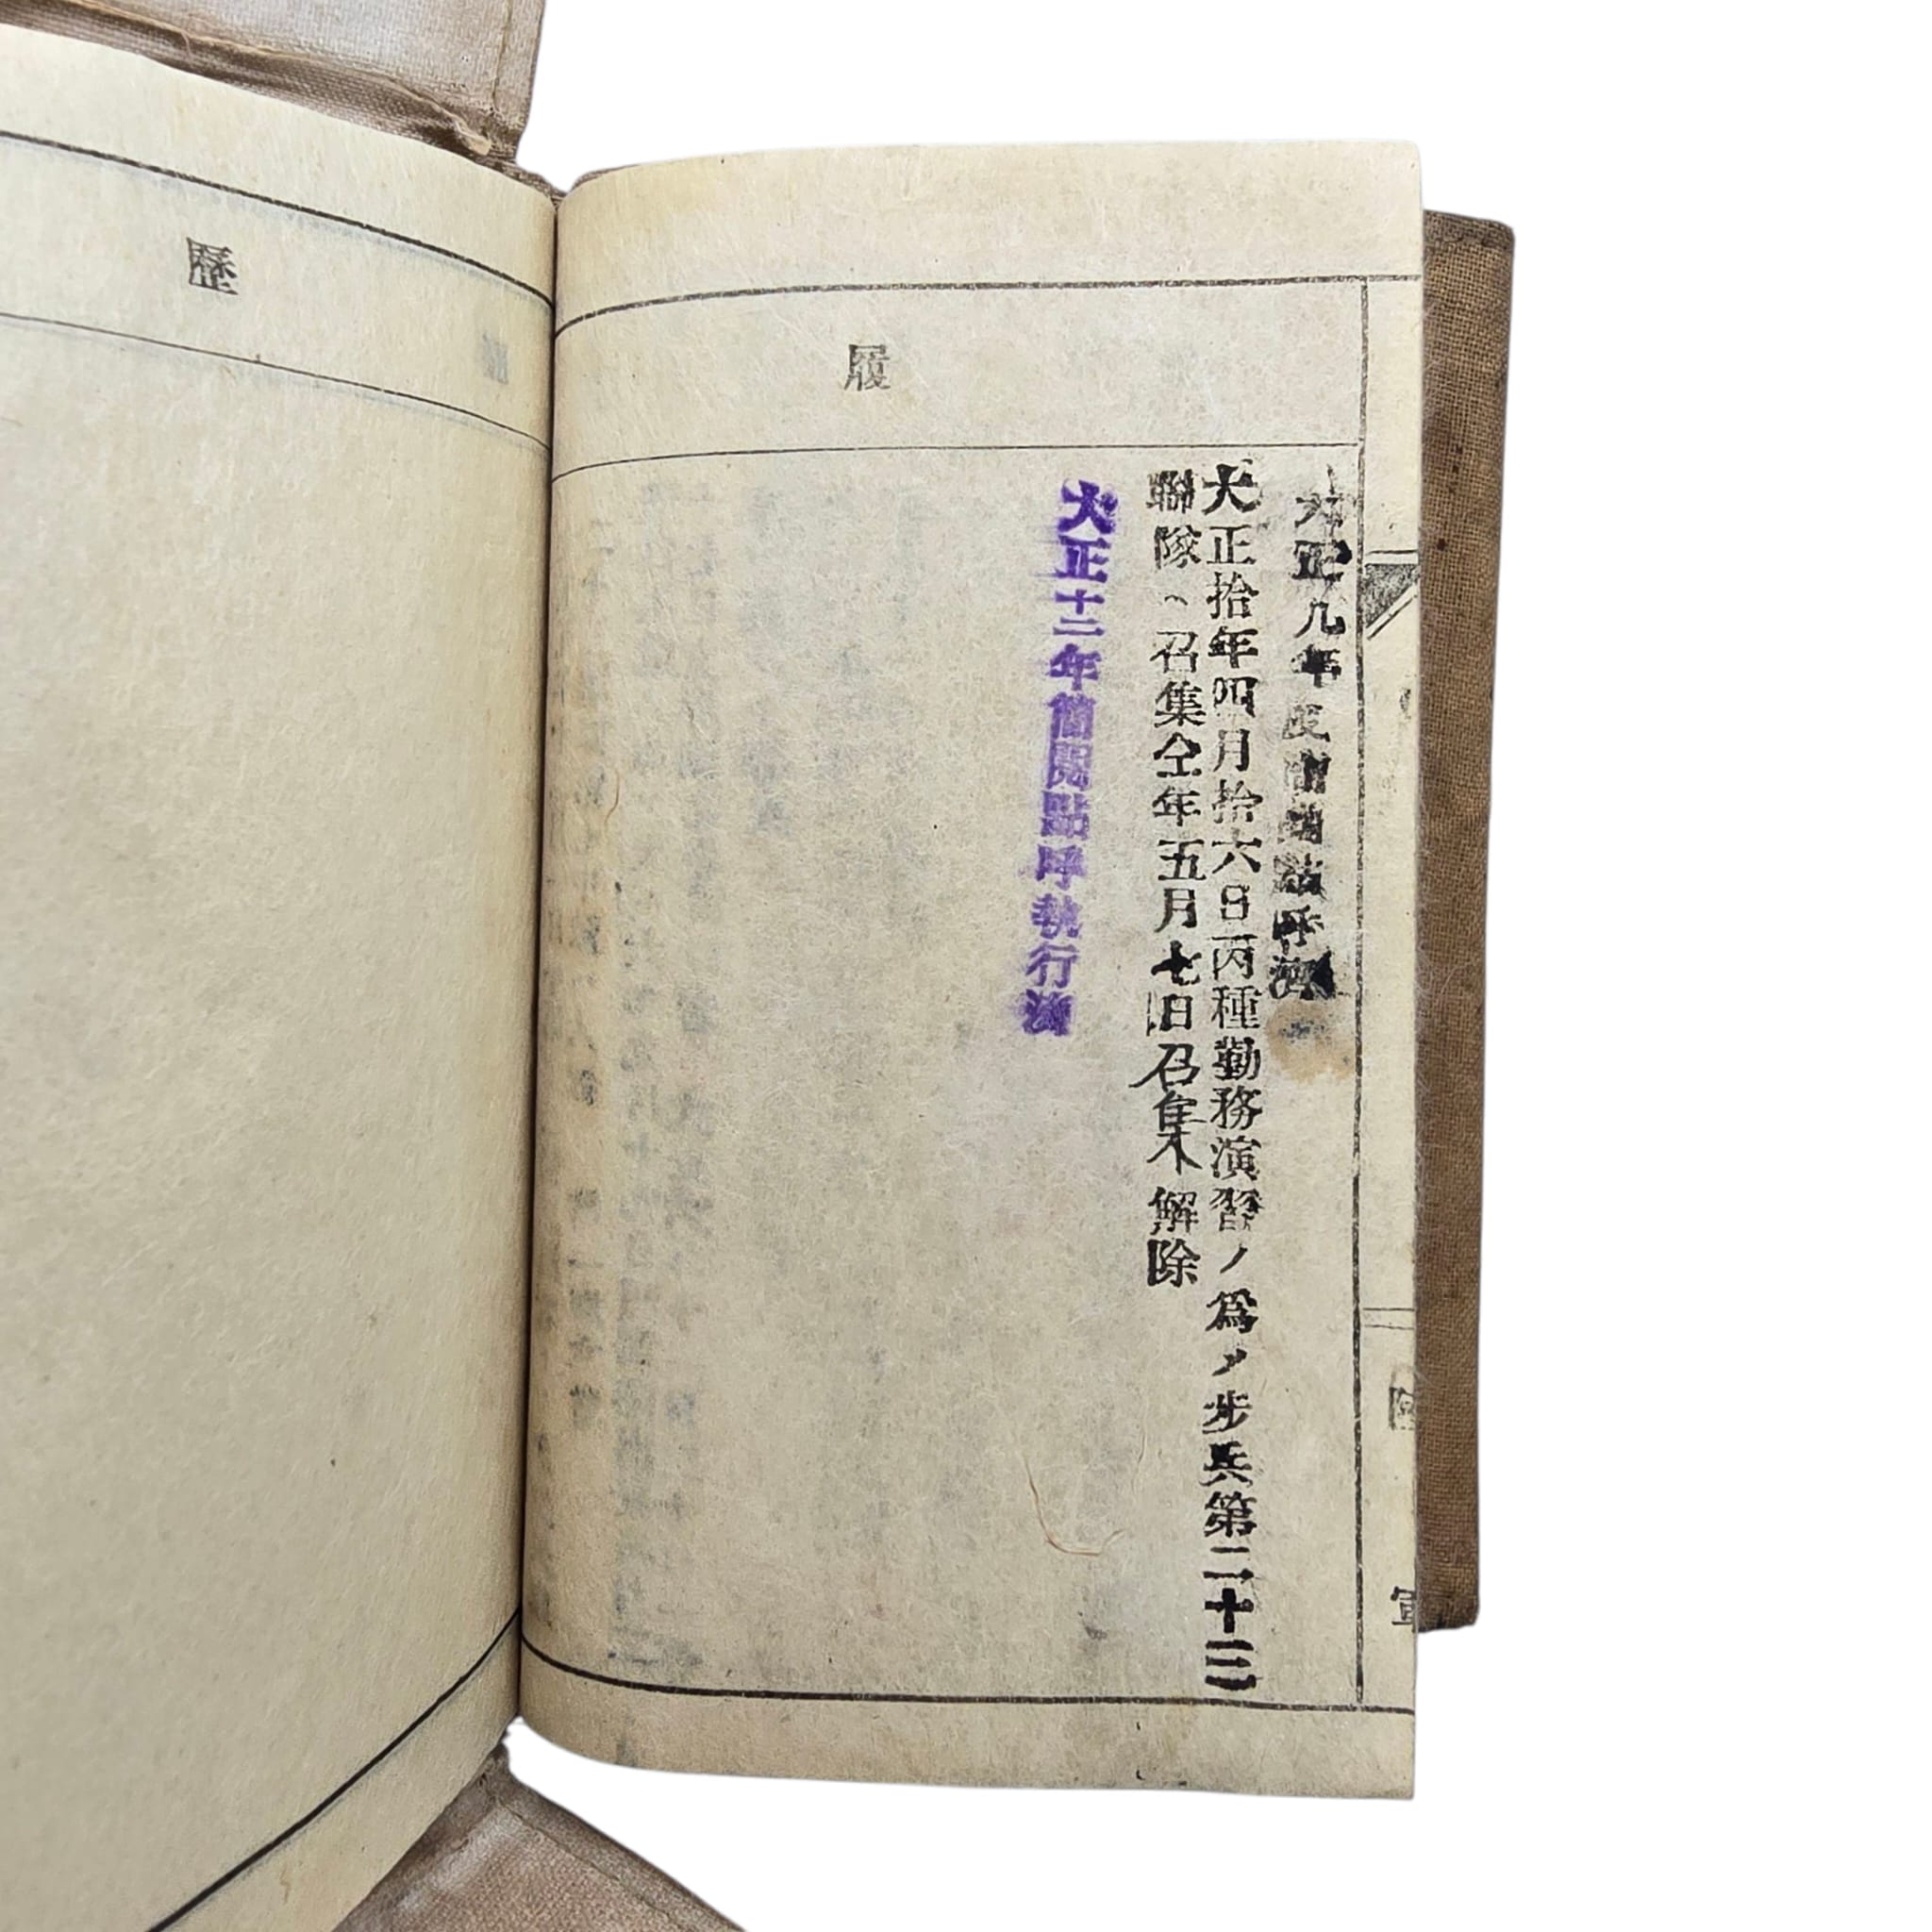 履
大正九年度簡閲點呼濟
大正拾年四月拾六日丙種勤務演習ノ爲メ歩兵第二十三
聯隊ヘ召集仝年五月七日召集解除
大正十二年簡閲點呼執行濟
歷